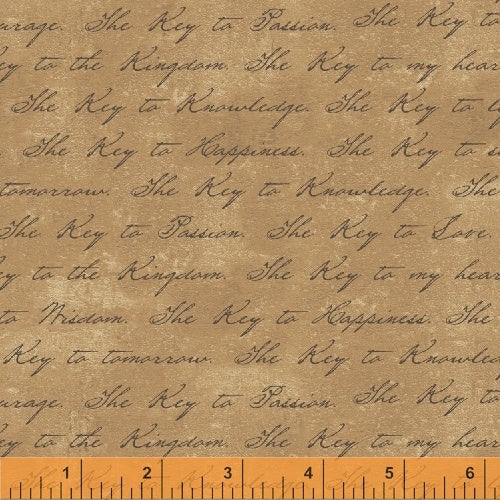 urage. The Key to Passion. The Key to
ey to the Kingdom. The Key to my hear
The Key to Knowledge. The Key to
The Key to Happiness. The Key to
tomorrow. The Key to Knowledge. The
The Key to Passion. The Key to Love.
ey to the Kingdom. The Key to my hear
to Wisdom. The Key to Happiness. The
Key to tomorrow. The Key to Knowled
urage. The Key to Passion. The Key to
ey to the Kingdom. The Key to my hear
1 2 3 4 5 6